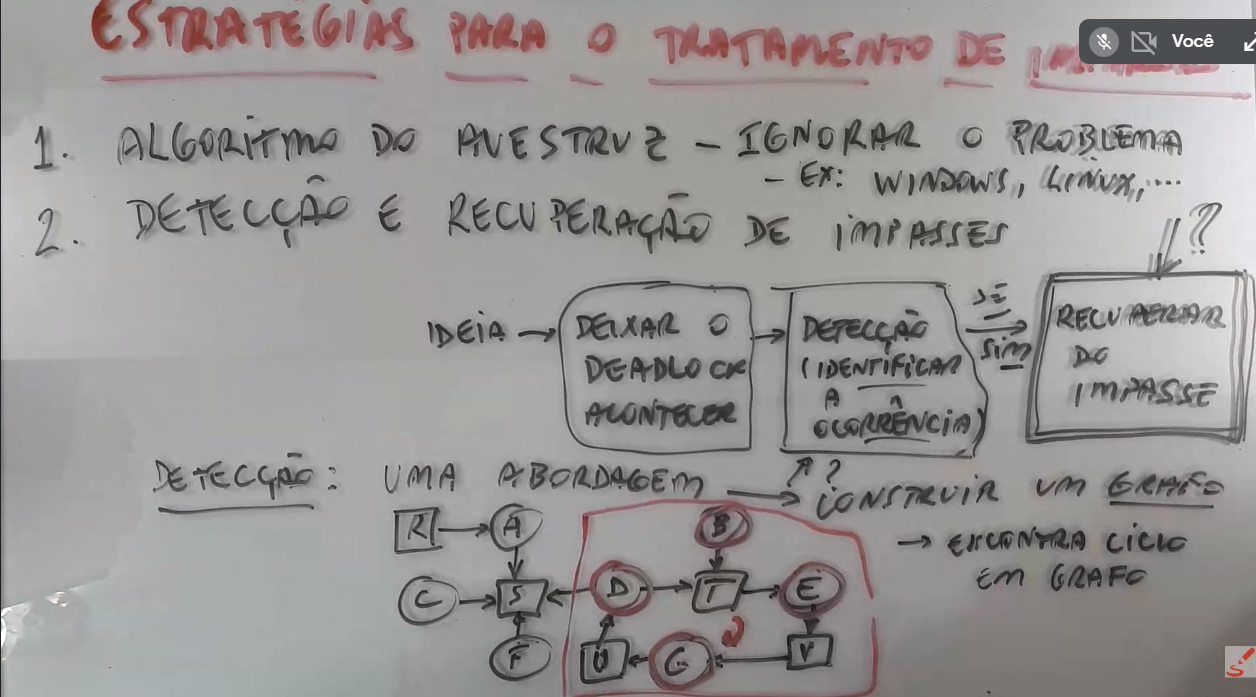 ESTRATÉGIAS PARA O TRATAMENTO DE
Você
1. ALGORITMO DO AVESTRUZ - IGNORAR O PROBLEMA
- EX: WINDOWS, LINUX,....
2. DETECÇÃO E RECUPERAÇÃO DE IMPASSES
?
IDEIA → DEIXAR O DEADLOCK ACONTECER → DETECÇÃO (IDENTIFICAR A OCORRÊNCIA) SE SIM → RECUPERAR DO IMPASSE
?
DETECÇÃO: UMA ABORDAGEM → CONSTRUIR UM GRAFO
→ ENCONTRA CICLO
EM GRAFO
R A B
C S D T E
F U G V